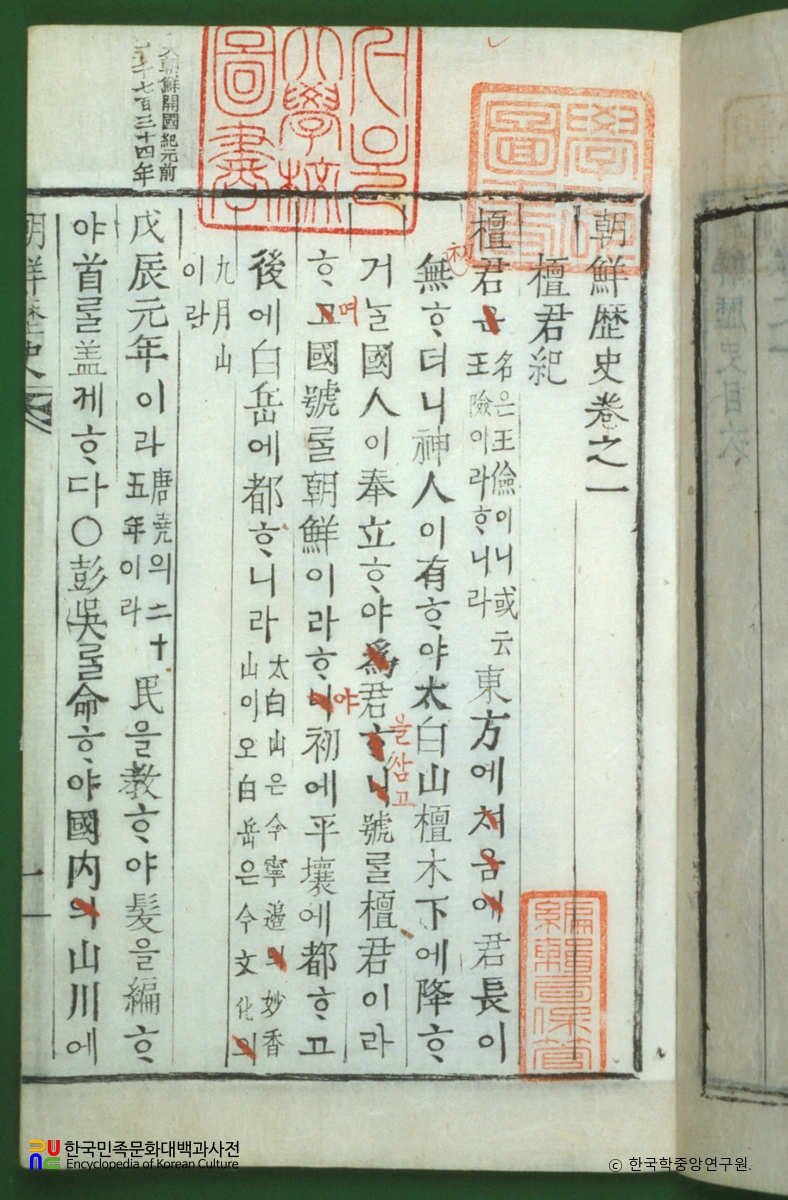 大朝鮮開國紀元前
千七百三十四年
學部圖書
大學校
圖書
朝鮮歷史卷之一
檀君紀
檀君은 名은王儉이니或云
王險이라ᄒᆞ니라 東方에처음에君長이
初
無ᄒᆞ더니神人이有ᄒᆞ야太白山檀木下에降ᄒᆞ
거ᄂᆞᆯ國人이奉立ᄒᆞ야爲君ᄒᆞ니號ᄅᆞᆯ檀君이라
을삼고
ᄒᆞ고國號ᄅᆞᆯ朝鮮이라ᄒᆞ니初에平壤에都ᄒᆞ고
며
야
後에白岳에都ᄒᆞ니라 太白山은今寧邊의妙香
山이오白岳은今文化의
九月山
이라
戊辰元年이라 唐堯의二十
五年이라 民을敎ᄒᆞ야髮을編ᄒᆞ
야首ᄅᆞᆯ盖게ᄒᆞ다○彭吳ᄅᆞᆯ命ᄒᆞ야國內의山川에
朝鮮歷史
一
編輯局保管
한국민족문화대백과사전
Encyclopedia of Korean Culture
© 한국학중앙연구원.